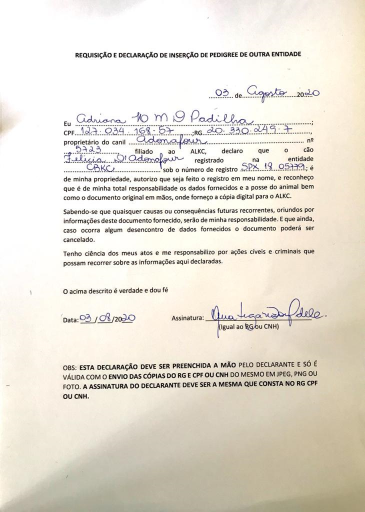 REQUISIÇÃO E DECLARAÇÃO DE INSERÇÃO DE PEDIGREE DE OUTRA ENTIDADE
03 de Agosto 2020
Eu Adriana M D Padilha;
CPF 127.034.168-57 ;RG 20.330.249-7,
proprietário do canil Adonafour nº
5723 filiado ao ALKC, declaro que o cão
D'Adonafour registrado na entidade
CBKC sob o número de registro SPX 18 05779; é
de minha propriedade, autorizo que seja feito o registro em meu nome, e reconheço
que é de minha total responsabilidade os dados fornecidos e a posse do animal bem
como o documento original em mãos, onde forneço a cópia digital para o ALKC.
Sabendo-se que quaisquer causas ou consequências futuras recorrentes, oriundos por
informações deste documento fornecido, serão de minha responsabilidade. E que ainda,
caso ocorra algum desencontro de dados fornecidos o documento poderá ser
cancelado.
Tenho ciência dos meus atos e me responsabilizo por ações cíveis e criminais que
possam recorrer sobre as informações aqui declaradas.
O acima descrito é verdade e dou fé
Data: 03/08/2020 Assinatura:
(Igual ao RG ou CNH)
OBS: ESTA DECLARAÇÃO DEVE SER PREENCHIDA A MÃO PELO DECLARANTE E SÓ É
VÁLIDA COM O ENVIO DAS CÓPIAS DO RG E CPF OU CNH DO MESMO EM JPEG, PNG OU
FOTO. A ASSINATURA DO DECLARANTE DEVE SER A MESMA QUE CONSTA NO RG CPF
OU CNH.